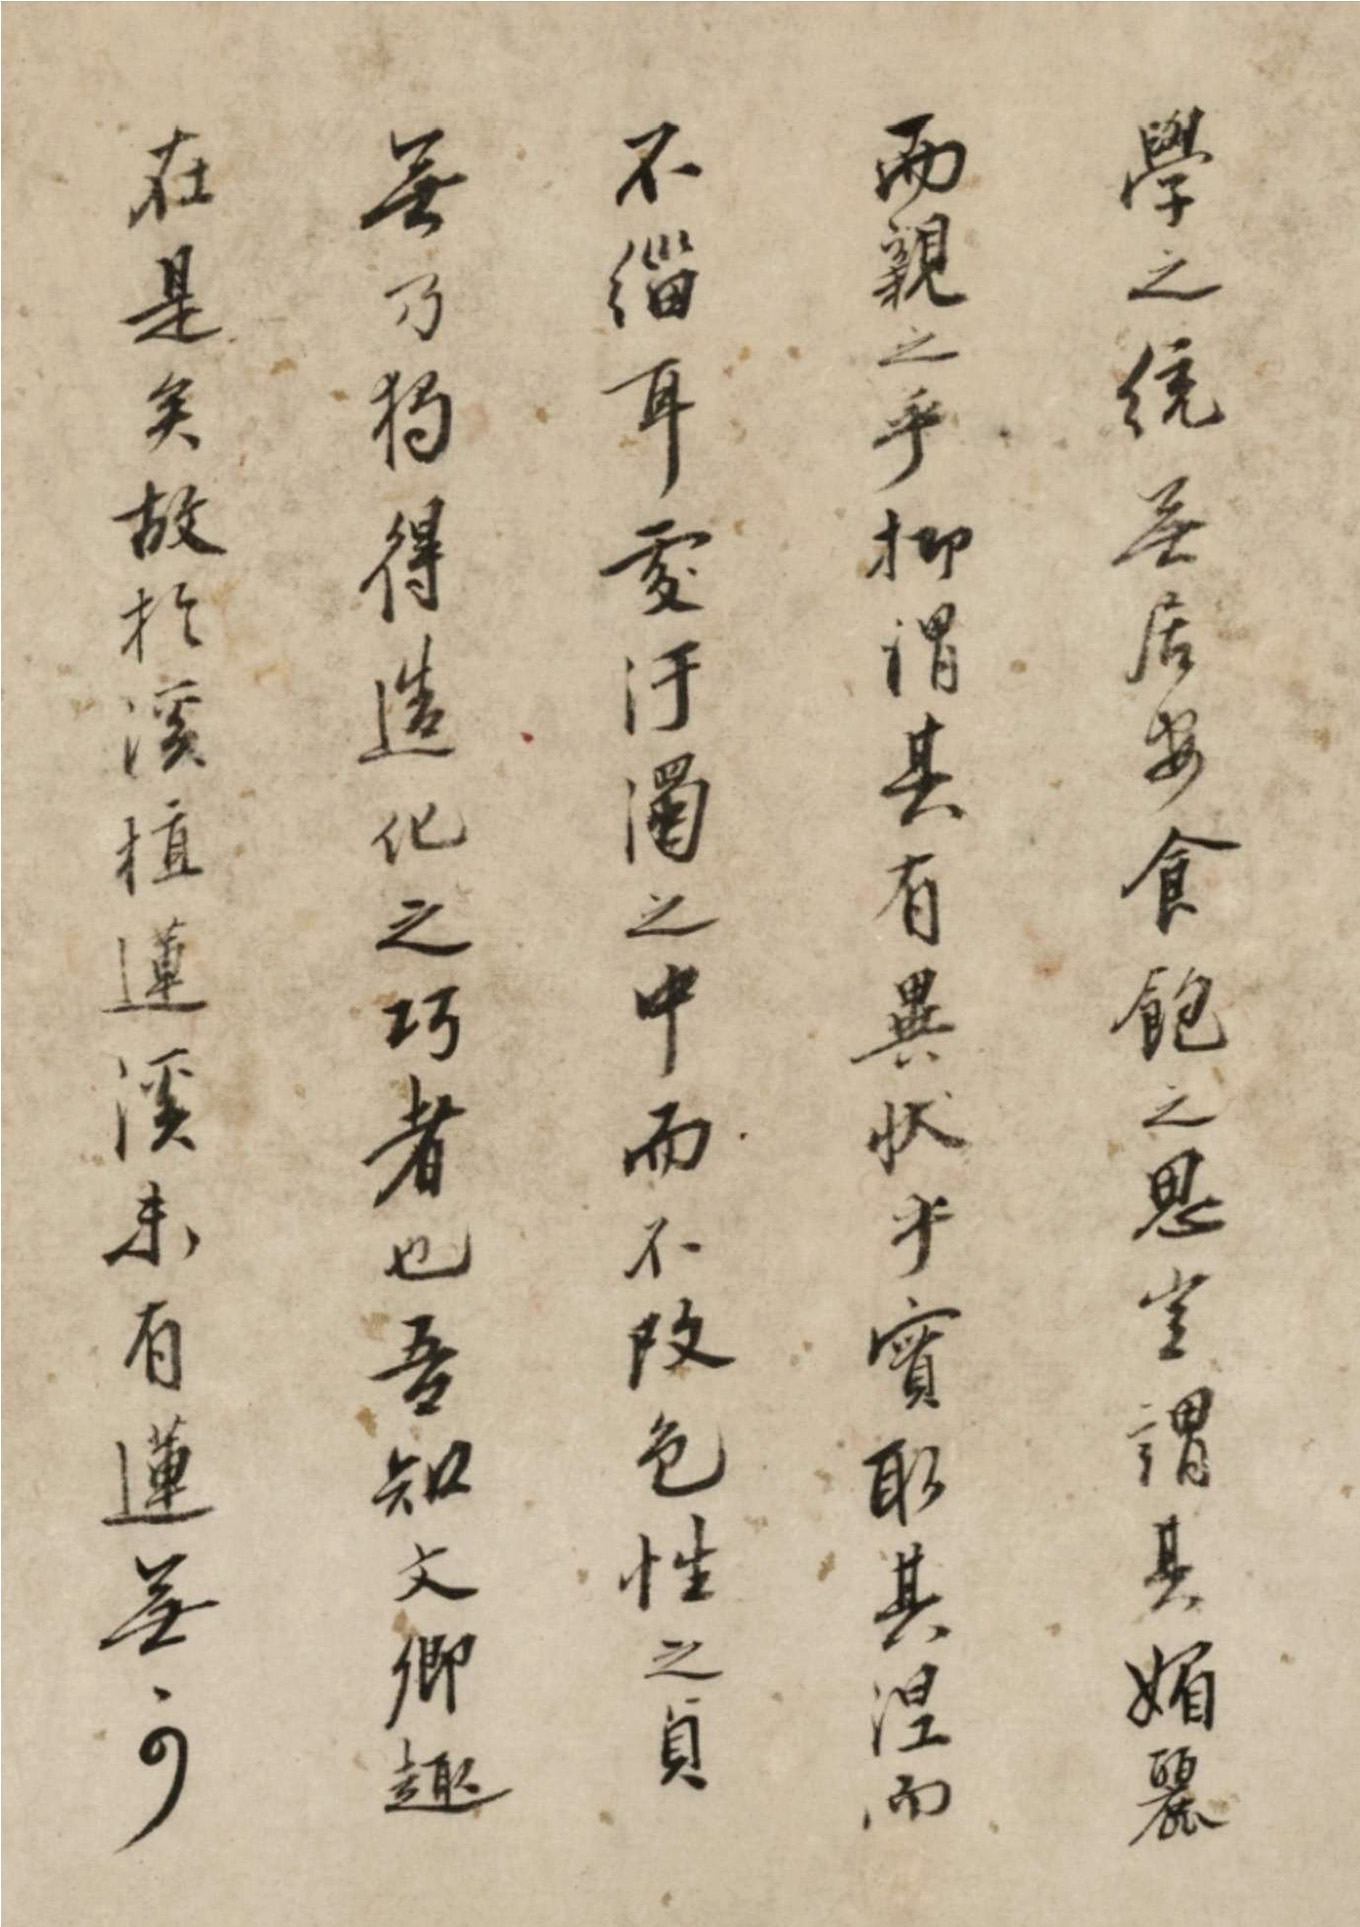 學之統無居安食飽之思豈謂其媚麗
而親之乎抑謂其有異狀乎實取其涅而
不緇耳處汙濁之中而不改色性之貞
無乃獨得造化之巧者也吾知文卿趣
在是矣故於溪植蓮溪未有蓮無可